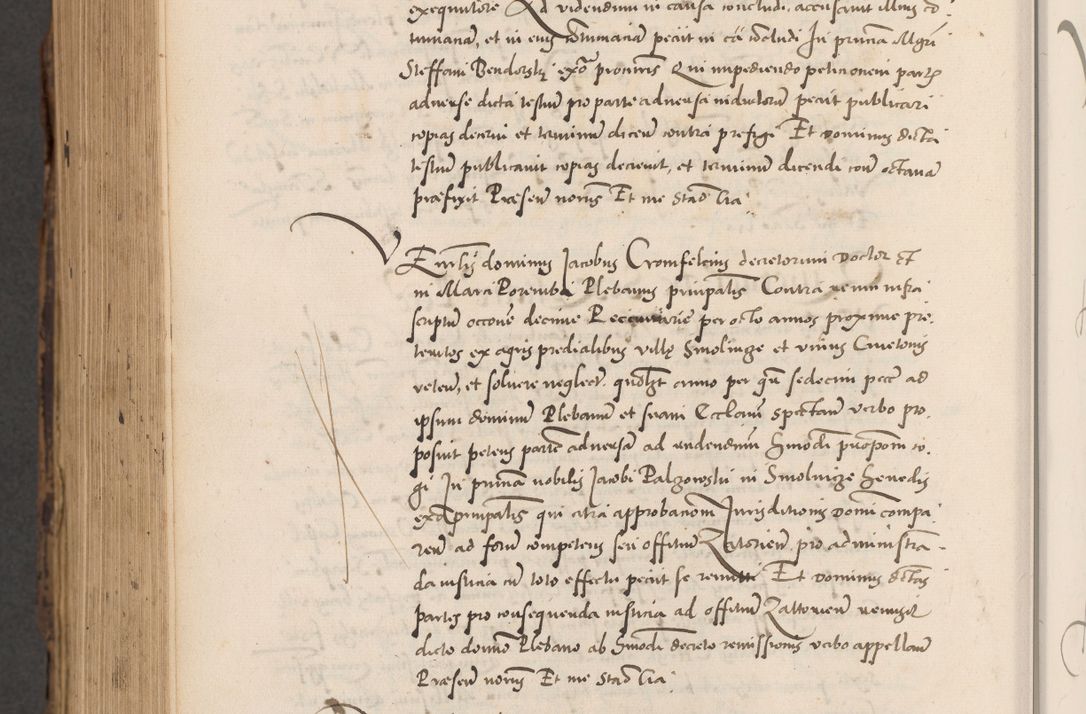 exequutore Ad videndum in causa concludi, accusavit illius co
tumaciam, et in eius cotumaciam peciit in ca concludi In pnciam Mgri
Steffani Bendorskj exo procuris Qui impediendo peticionem partis
adverse dicta testium pro parte adversa inductorum peciit publicari
copias decerni et terminum dicendi contra prefigi Et dominus dicta
testium publicavit copias decrevit, et terminum dicendi con octava
prefixit Presen norijs Et me Stad Cra
Enrlis dominus Jacobus Cromfelcius decretorum Doctor Et
in Marci Poremba Plebanus principalis Contra remm infra
scriptum occone decime Pecuniarie per octo annos proxime pre-
teritos ex agris predialibus ville Smolincze et unius Cmetonis
veten, et solvere neglect. quodlt anno per gr sedecim pccc ad
ipsum dominum Plebanum et suam Ecclam spectan verbo pro-
posuit petens partem adversam ad reddendum hmodi proporn co-
gi In pnciam nobilis Jacobi Palczowskii in Smolnicze heredis
exo principalis qui citra approbacionem Jurisditionis domi compa-
ren ad forum competens seu offitium Zatorien pro administra-
da iusticia cum toto effectu peciit se remitti Et dominus dictas
partes pro consequenda iusticia ad offitium Zattorien remisit
dicto domino Plebano ab hmodi decreto remissionis verbo appellan
Presen norijs Et me Stad Cra